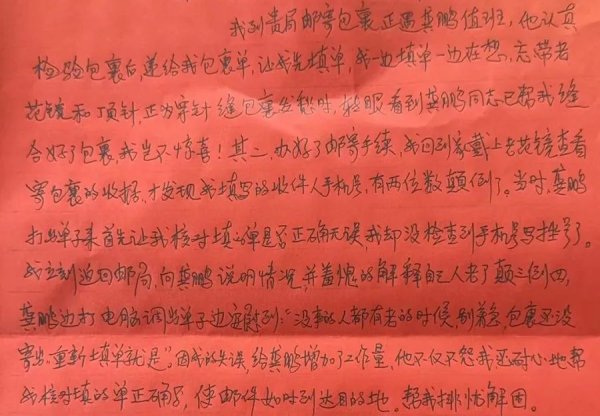 我到贵局邮寄包裹正遇龚鹏值班，他认真
检验包裹后递给我包裹单，让我先填单，我一边填单一边在想，忘带老
花镜和丁页针，正为穿针缝包裹发愁时，转眼看到龚鹏同志已帮我缝
合好了包裹我岂不惊喜！其二，办好了邮寄手续，我回到家戴上老花镜查看
寄包裹的收据，才发现我填写的收件人手机号，有两位数颠倒了。当时，龚鹏
打出单子来首先让我核对填的单是否正确无误我却没检查到手机号写挫号了。
我立刻返回邮局，向龚鹏说明情况，并羞愧的解释自己人老了颠三倒四，
龚鹏边打电脑调出单子边安慰到：“没事的人都有老的时候，别着急，包裹还没
寄出，重新填单就是”。因我的失误，给龚鹏增加了工作量，他不仅不怨我还耐心地帮
我核对填的单正确了，使邮件如时到达目的地。帮我排忧解困。